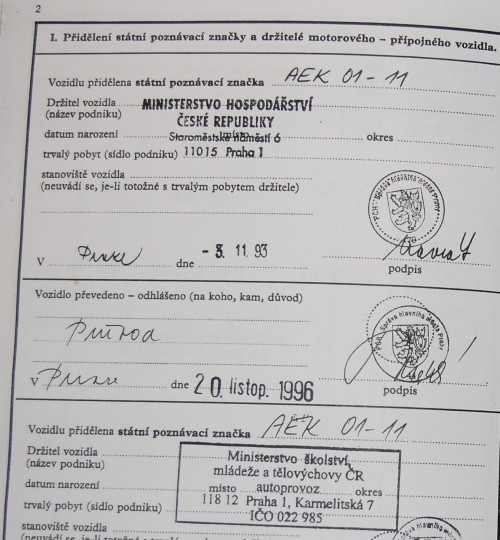 2
I. Přidělení státní poznávací značky a držitelé motorového – přípojného vozidla.
Vozidlu přidělena státní poznávací značka AEK 01-11
Držitel vozidla MINISTERSTVO HOSPODÁŘSTVÍ
(název podniku) ČESKÉ REPUBLIKY
datum narození Staroměstské náměstí 6 místo okres
trvalý pobyt (sídlo podniku) 11015 Praha 1
stanoviště vozidla
(neuvádí se, je-li totožné s trvalým pobytem držitele)
V Praze dne - 3. 11. 93
podpis
Vozidlo převedeno – odhlášeno (na koho, kam, důvod)
Převod
v Praze dne 20. listop. 1996
podpis
Vozidlu přidělena státní poznávací značka AEK 01-11
Držitel vozidla Ministerstvo školství,
(název podniku) mládeže a tělovýchovy ČR
datum narození místo autoprovoz okres
trvalý pobyt (sídlo podniku) 118 12 Praha 1, Karmelitská 7
IČO 022 985
stanoviště vozidla
(neuvádí se, je-li totožné s trvalým pobytem držitele)